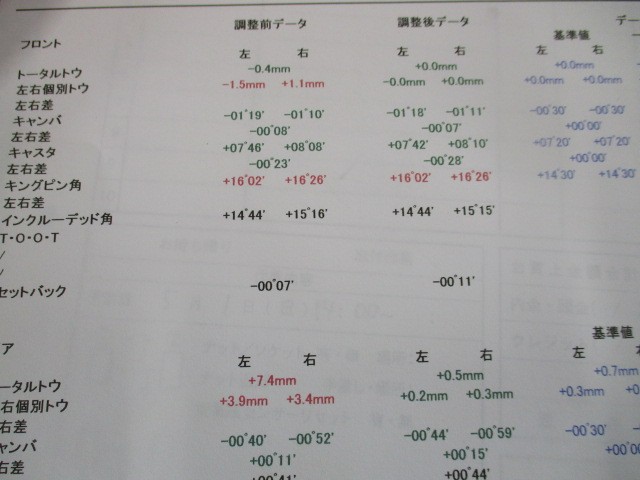 調整前データ 調整後データ デー
フロント 左 右 左 右 基準値
左 右
トータルトウ -0.4mm +0.0mm +0.0mm
左右個別トウ -1.5mm +1.1mm -0.0mm +0.0mm +0.0mm +0.0mm
左右差
キャンバ -01°19' -01°10' -01°18' -01°11' -00°30' -00°30'
左右差 -00°08' -00°07' +00°00'
キャスタ +07°46' +08°08' +07°42' +08°10' +07°20' +07°20'
左右差 -00°23' -00°28' +00°00'
キングピン角 +16°02' +16°26' +16°02' +16°26' +14°30' +14°30'
左右差
インクルーデッド角 +14°44' +15°16' +14°44' +15°15'
T・O・O・T
セットバック -00°07' -00°11'
基準値
ア 左 右 左 右 左
ータルトウ +7.4mm +0.5mm +0.7mm
右個別トウ +3.9mm +3.4mm +0.2mm +0.3mm +0.3mm +0.
右差
ャンバ -00°40' -00°52' -00°44' -00°59' -00°30'
右差 +00°11' +00°15' +00°0
+00°41' +00°44'